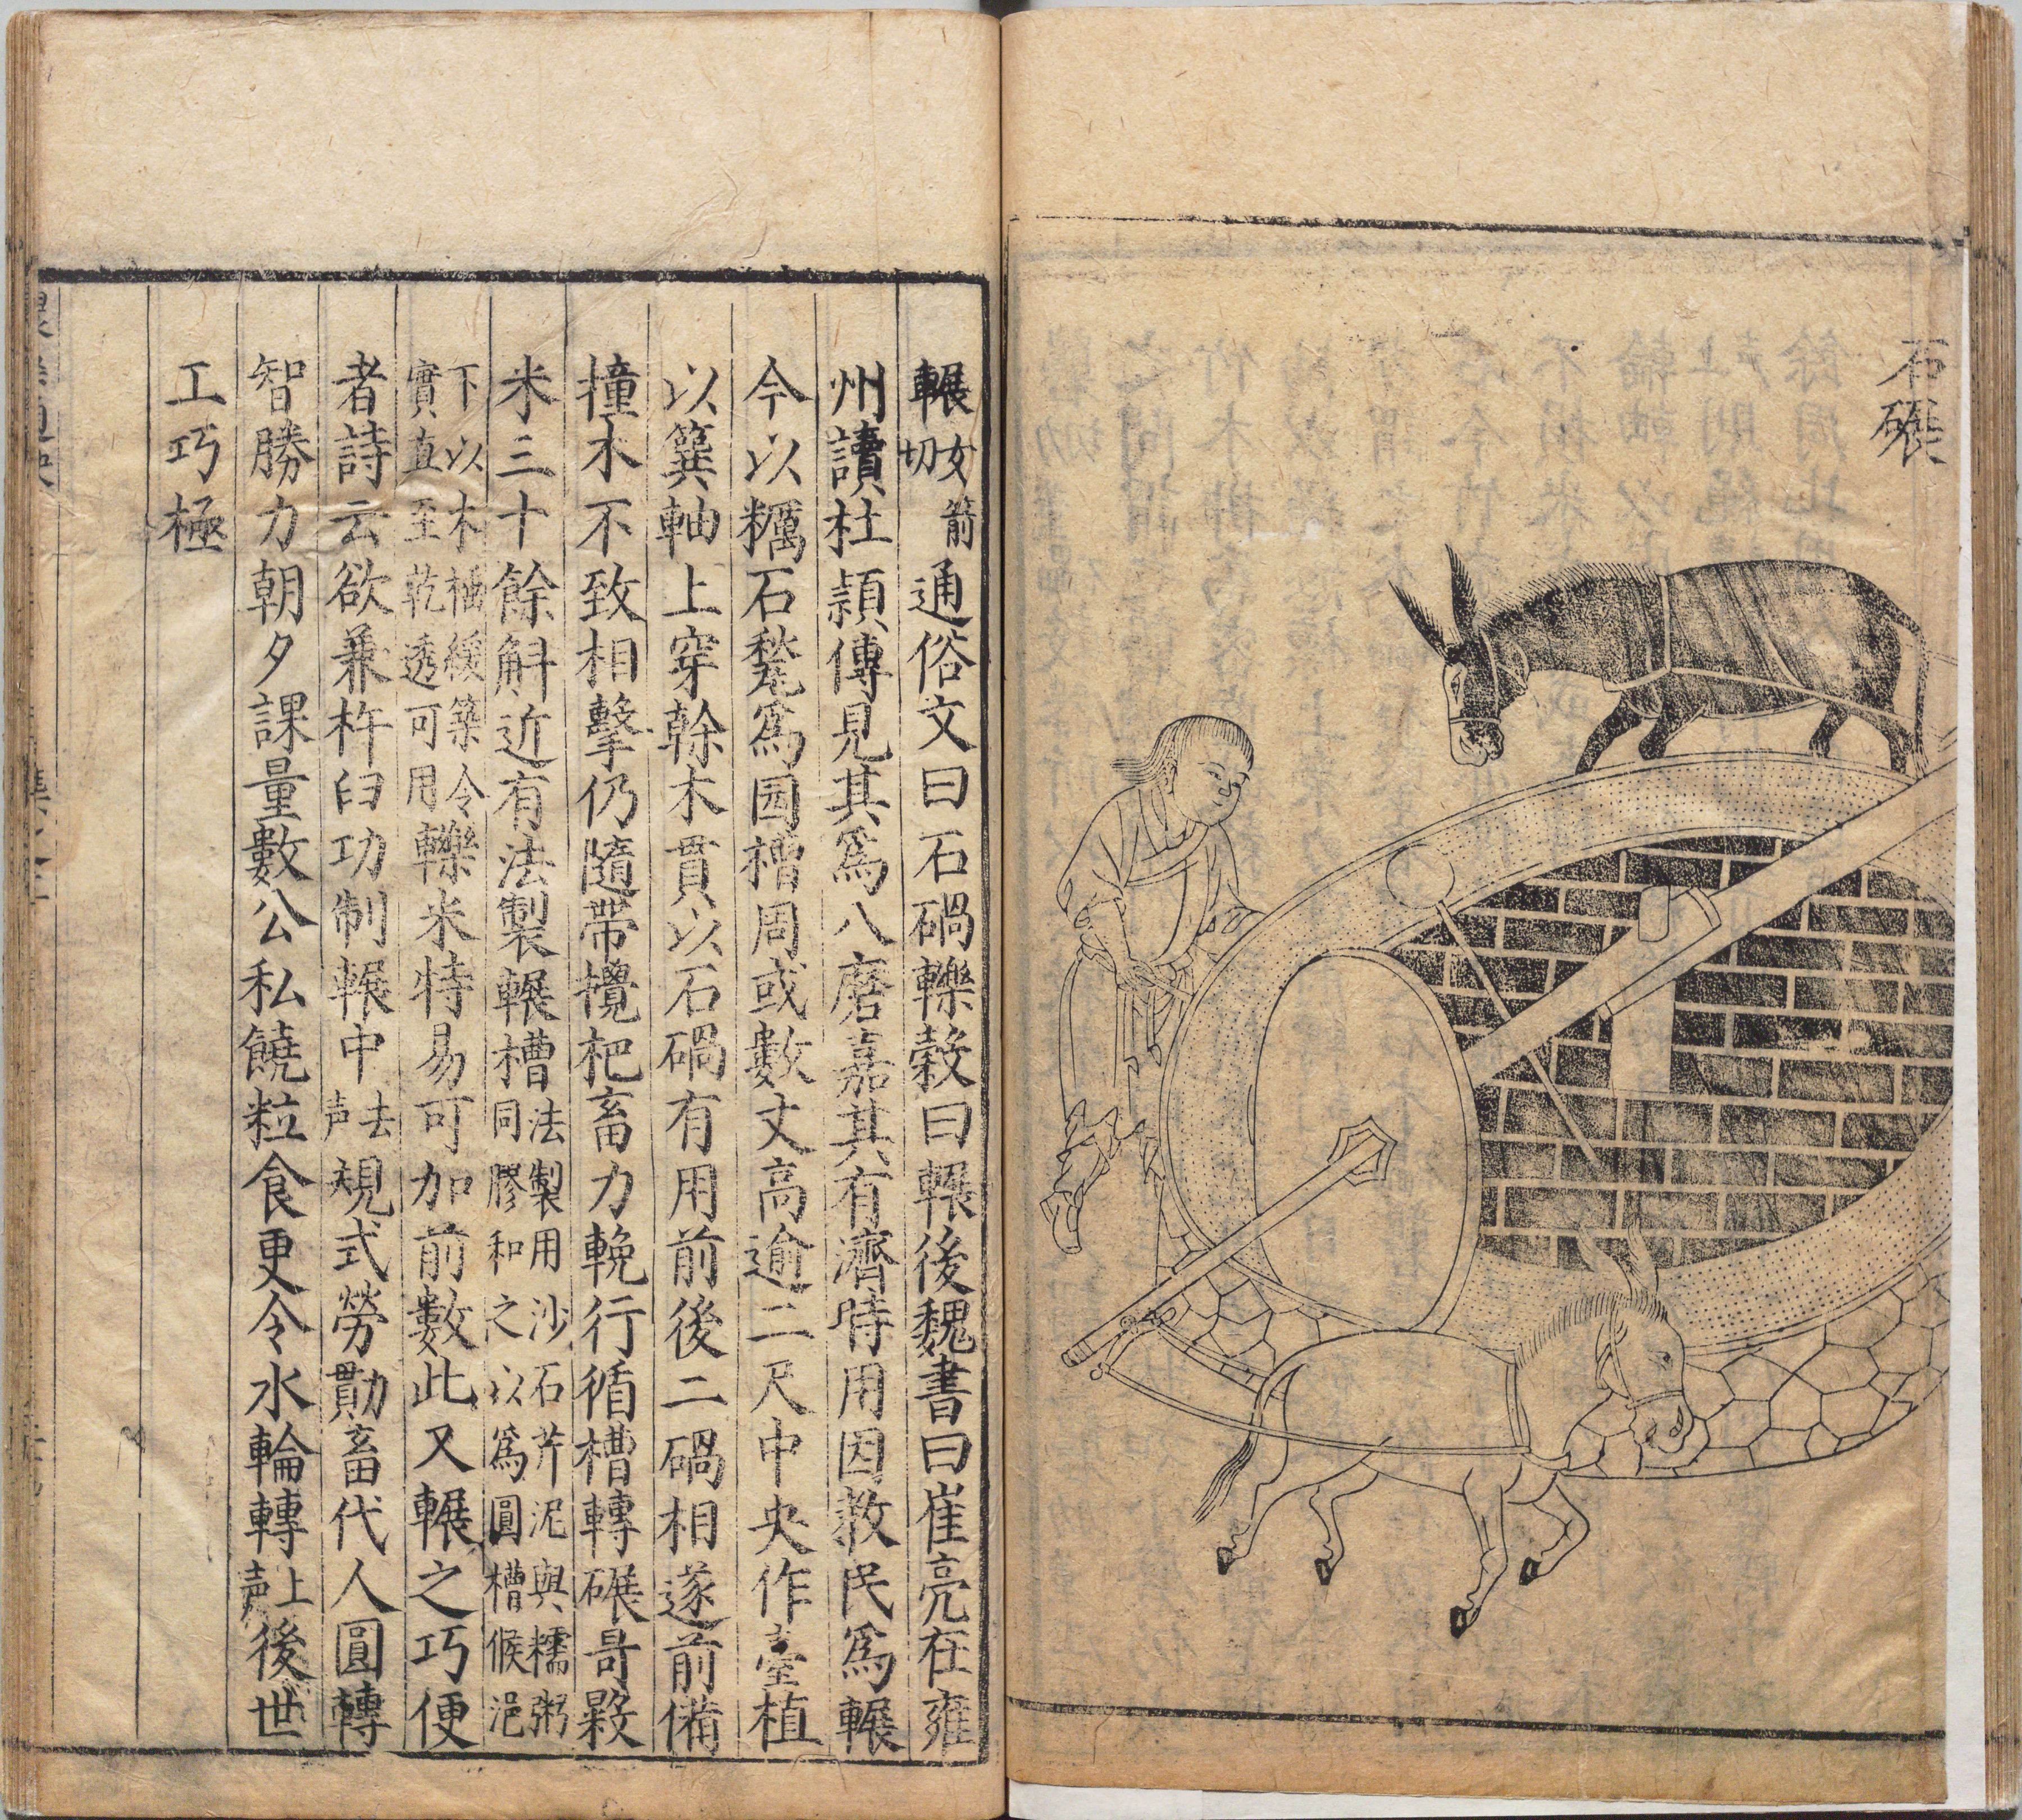 石碾
輾女箭切通俗文曰石碢轢穀曰輾後魏書曰崔亮在雍
州讀杜頴傳見其爲八磨嘉其有濟時用因教民爲輾
今以糲石甃爲圆槽周或數丈高逾二尺中央作臺植
以簨軸上穿榦木貫以石碢有用前後二碢相遂前備
撞木不致相擊仍隨帶攪杷畜力輓行循槽轉碾日㲉
米三十餘斛近有法製輾槽法製用沙石芹泥與糯粥同膠和之以爲圓槽候浥
下以木槌緩築令實直至乾透可用轢米特易可加前數此又輾之巧便
者詩云欲兼杵臼功制輾中去声規式勞勩畜代人圓轉
智勝力朝夕課量數公私饒粒食更令水輪轉上声後世
工巧極